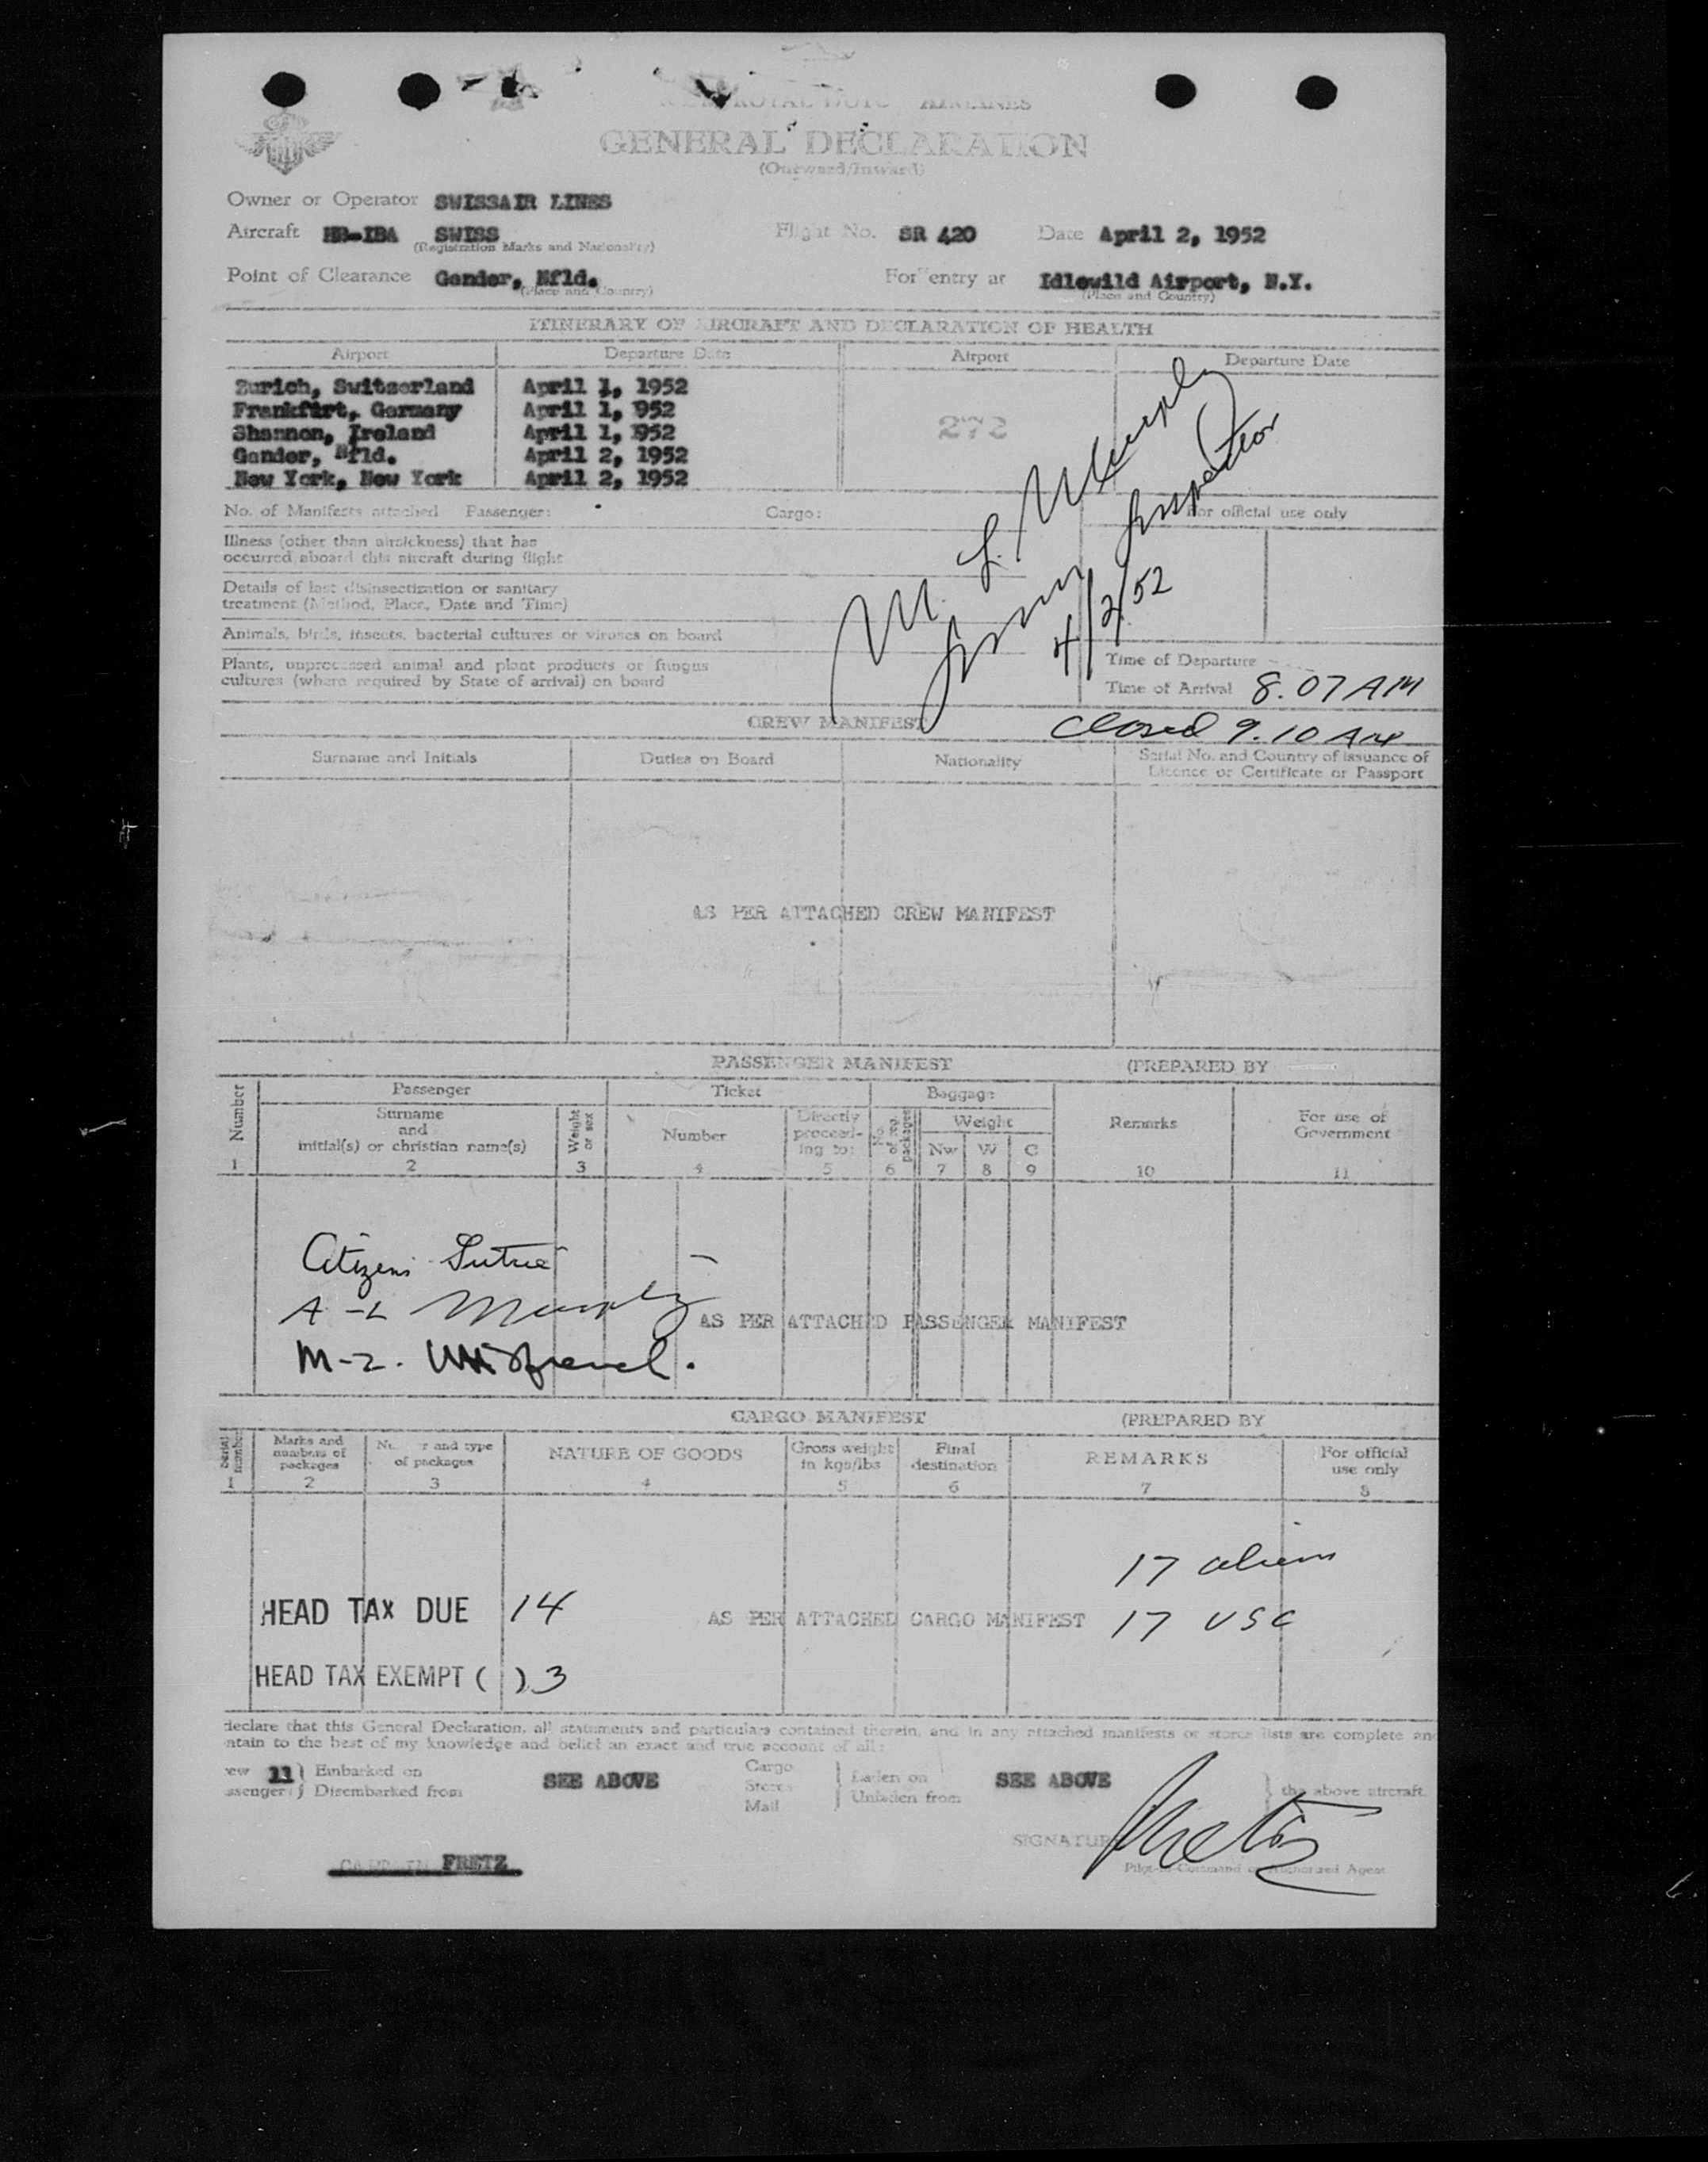 ROYAL DUTCH AIRLINES
GENERAL DECLARATION
(Outward/Inward)
Owner or Operator SWISSAIR LINES
Aircraft HB-IBA SWISS Flight No. SR 420 Date April 2, 1952
(Registration Marks and Nationality)
Point of Clearance Gander, Nfld. For entry at Idlewild Airport, N.Y.
(Place and Country) (Place and Country)
ITINERARY OF AIRCRAFT AND DECLARATION OF HEALTH
Airport Departure Date Airport Departure Date
Zurich, Switzerland April 1, 1952
Frankfurt, Germany April 1, 952
272
Shannon, Ireland April 1, 952
Gander, Nfld. April 2, 1952
New York, New York April 2, 1952
M. L. Murphy
Immn Inspector
4/2/52
No. of Manifests attached Passenger: Cargo: For official use only
Illness (other than airsickness) that has
occurred aboard this aircraft during flight
Details of last disinsectization or sanitary
treatment (Method, Place, Date and Time)
Animals, birds, insects, bacterial cultures or viruses on board
Plants, unprocessed animal and plant products or fungus
cultures (where required by State of arrival) on board
Time of Departure
Time of Arrival 8.07 AM
CREW MANIFEST closed 9.10 AM
Surname and Initials Duties on Board Nationality Serial No. and Country of issuance of
Licence or Certificate or Passport
AS PER ATTACHED CREW MANIFEST
PASSENGER MANIFEST (PREPARED BY
Number Passenger Ticket Baggage
Surname
and
initial(s) or christian name(s) Weight or sex Number Directly
proceed-
ing to: No. of reg. packages Weight Remarks For use of
Government
Nw W C
1 2 3 4 5 6 7 8 9 10 11
Citizens
A-L Murphy
AS PER ATTACHED PASSENGER MANIFEST
M-2.
CARGO MANIFEST (PREPARED BY
Serial number Marks and
numbers of
packages and type
of packages NATURE OF GOODS Gross weight
in kgs/lbs Final
destination REMARKS For official
use only
1 2 3 4 5 6 7 8
17 aliens
HEAD TAX DUE 14 AS PER ATTACHED CARGO MANIFEST 17 USC
HEAD TAX EXEMPT ( ) 3
declare that this General Declaration, all statements and particulars contained therein, and in any attached manifests or stores lists are complete an
ntain to the best of my knowledge and belief an exact and true account of all:
ew 11 ) Embarked on SEE ABOVE Cargo Laden on SEE ABOVE
ssenger ) Disembarked from Stores Unladen from the above aircraft.
Mail
SIGNATURE
CAPTAIN FRETZ
Pilot-in-Command or Authorized Agent